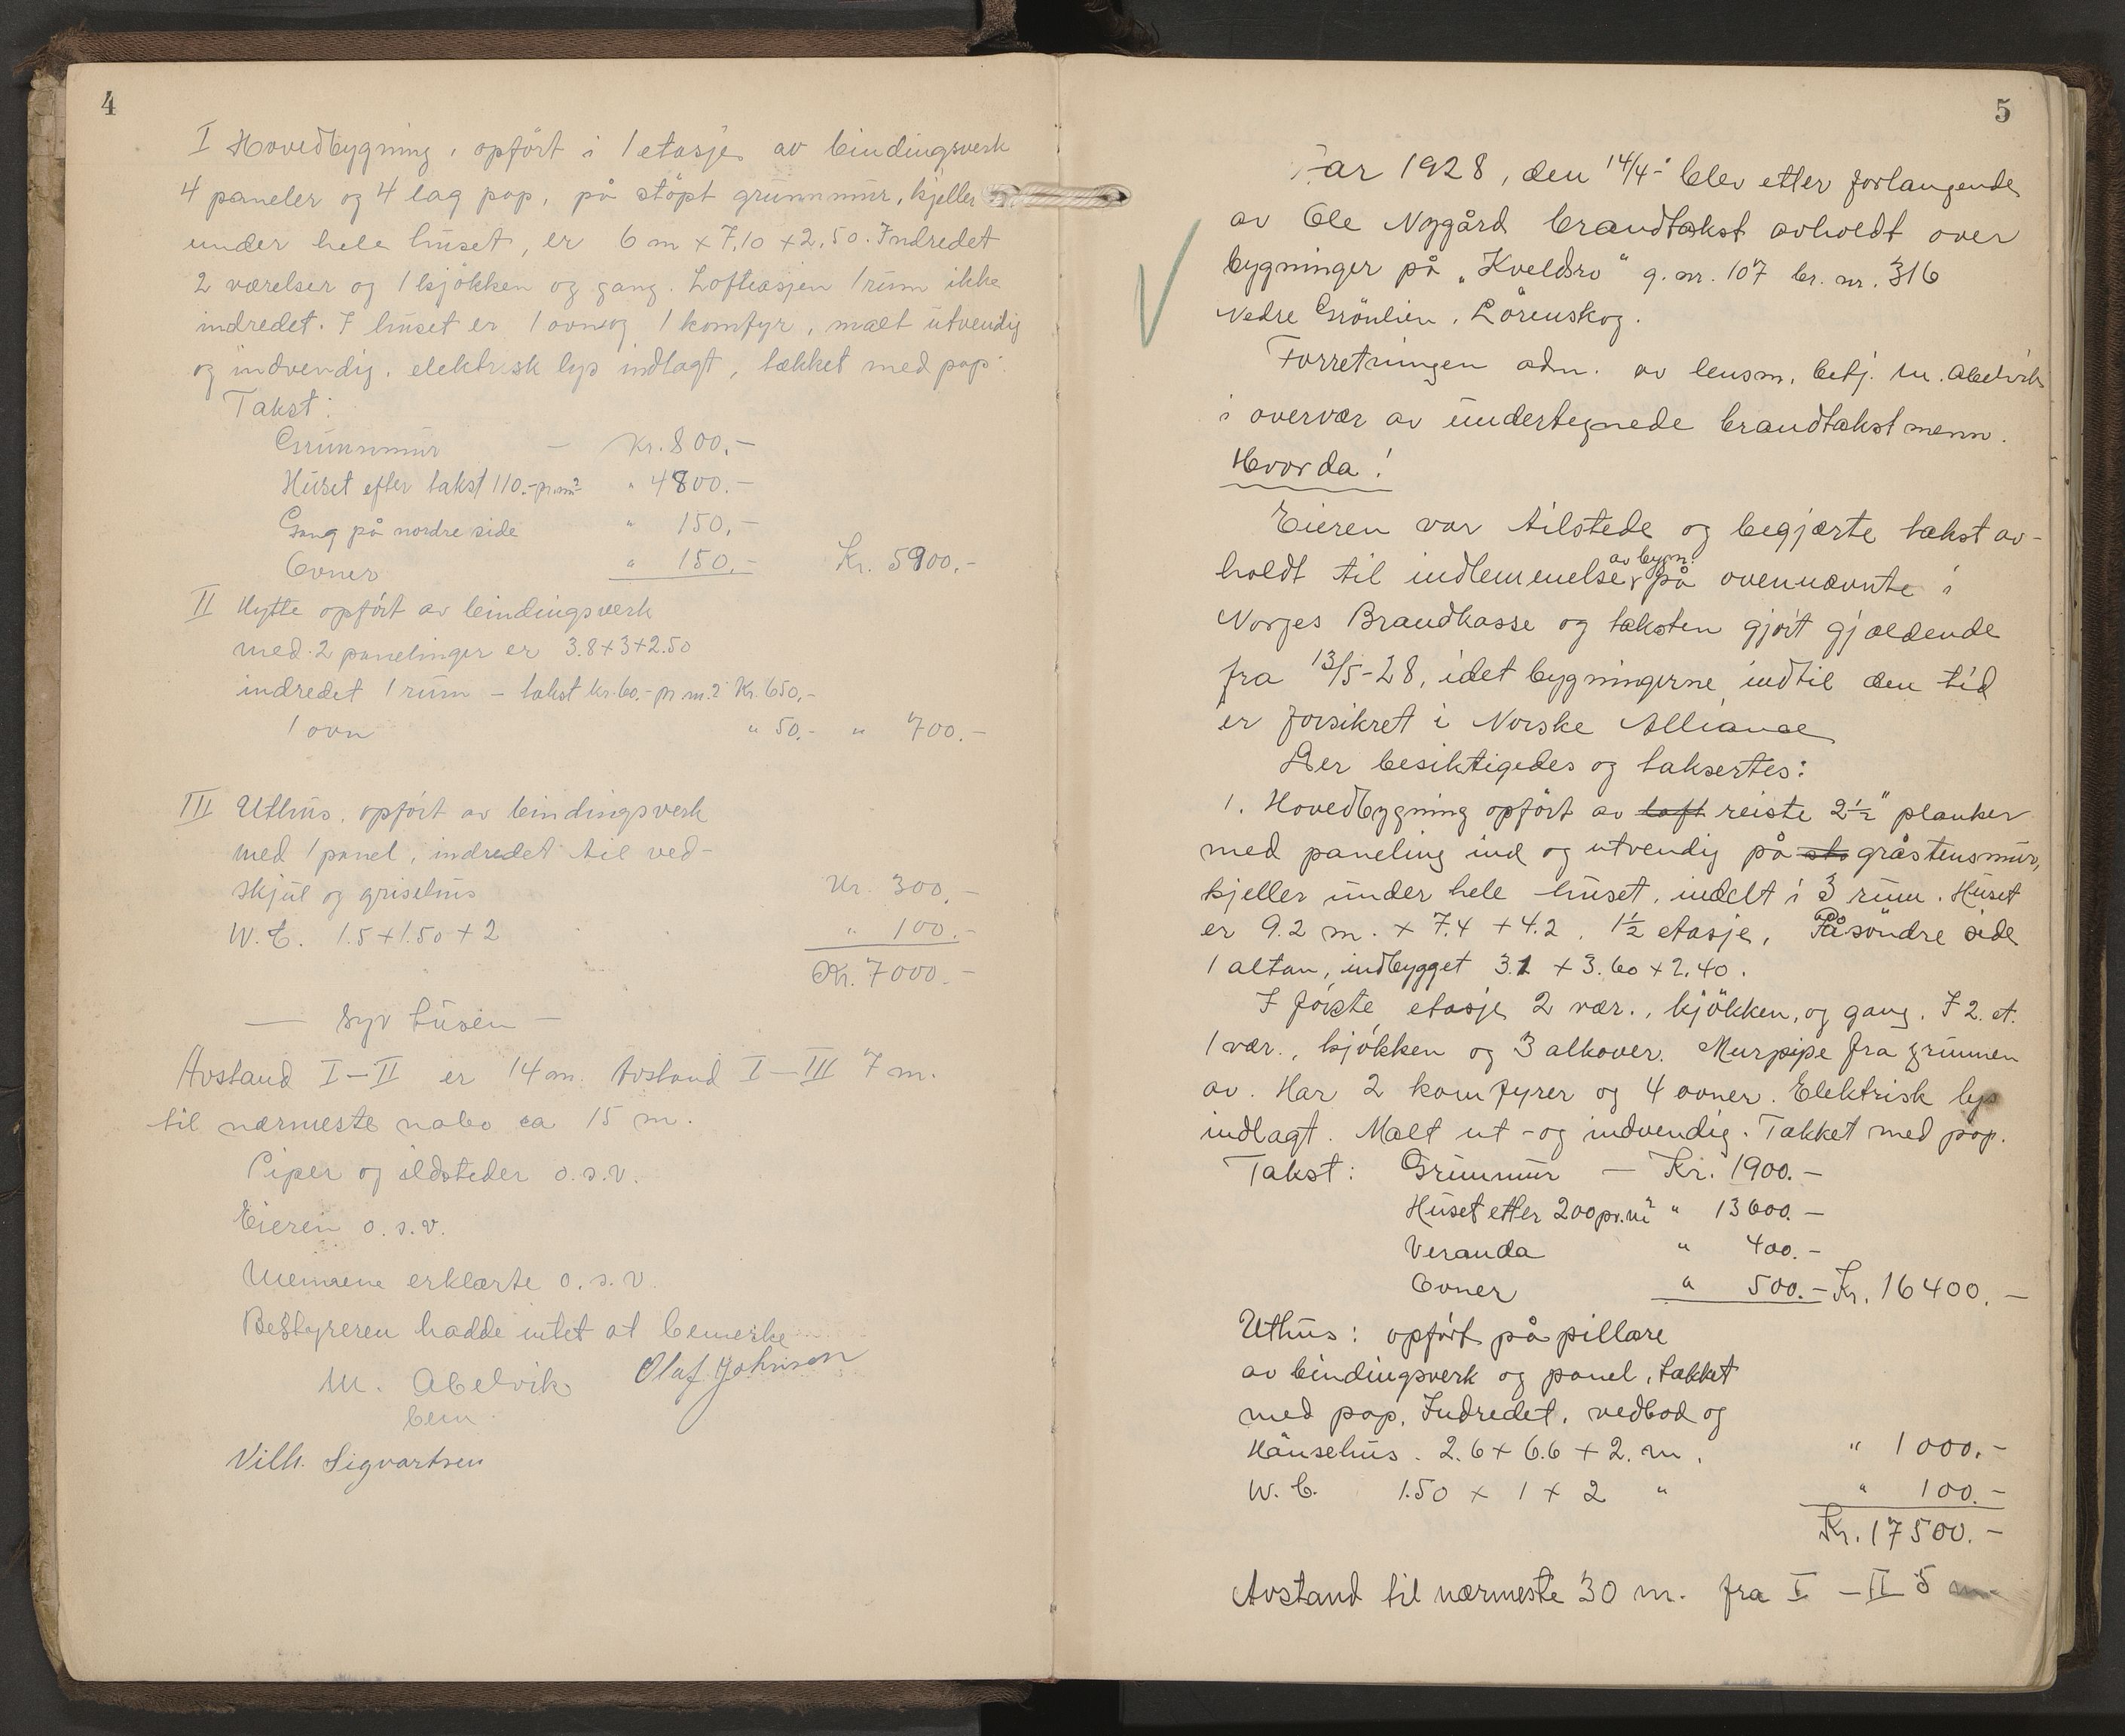 4
I Hovedbygning, opført i 1 etasje av bindingsverk
4 paneler og 4 lag pap, på støpt grunnmur, kjeller
under hele huset, er 6 m x 7,10 + 2,50. Indredet
2 værelser og 1 kjøkken og gang. Lofteasjen 1 rum ikke
indredet. I huset er 1 ovn og 1 komfyr, malt utvendig
og indvendig, elektrisk lys indlagt, tækket med pap.
Takst:
Grunnmur — Kr. 800.-
Huset efter takst 110.- pr.m² " 4800.-
Gang på nordre side " 150.-
Ovner " 150.- Kr. 5900.-
II Hytte opført av bindingsverk
med 2 panelinger er 3.8+3+2.50
indredet 1 rum – takst kr. 60.- pr m.² Kr. 650.-
1 ovn " 50.- " 700.-
III Uthus, opført av bindingsverk
med 1 panel, indredet til ved-
skjul og grisehus Kr. 300.-
W.C. 1.5+1.50+2 " 100.-
Kr. 7000.-
— Syv tusen —
Avstand I—II er 14 m. Avstand I—III 7 m.
til nærmeste nabo ca 15 m.
Piper og ildsteder o.s.v.
Eieren o.s.v.
Mennene erklærte o.s.v.
Bestyreren hadde intet at bemerke
M. Abelvik Olaf Johnsen
bem.
Vilh. Sigvartsen
5
År 1928, den 14/4- blev etter forlangende
av Ole Nygård brandtakst avholdt over
bygninger på „Kveldsro" g.nr. 107 br. nr. 316
Nedre Grönlien, Lörenskog.
Forretningen adm. av lensm. betj. M. Abelvik
i overvær av undertegnede brandtakstmenn.
Hvorda!
Eieren var tilstede og begjærte takst av-
holdt til indlemmelse av bygn. på ovennævnte i
Norges Brandkasse og taksten gjört gjældende
fra 13/5-28, idet bygningerne indtil den tid
er forsikret i Norske Alliance
Der besiktigedes og taksertes:
1. Hovedbygning opfört av laft reiste 2½" planker
med paneling ind og utvendig på stø gråstensmur,
kjeller under hele huset, indelt i 3 rum. Huset
er 9.2 m. x 7.4 + 4.2. 1½ etasje, På söndre side
1 altan, indbygget 3.1 + 3.60 + 2.40.
I förste etasje 2 vær., kjökken, og gang. I 2. et.
1 vær., kjökken og 3 alkover. Murpipe fra grunnen
av. Har 2 komfyrer og 4 ovner. Elektrisk lys
indlagt. Malt ut - og indvendig. Takket med pap.
Takst: Grunmur — Kr. 1900.—
Huset etter 200 pr. m² " 13600.—
Veranda " 400.—
Ovner " 500.— Kr. 16400.—
Uthus: opfört på pillare
av bindingsverk og panel, takket
med pap. Indredet, vedbod og
Hönsehus. 2.6 + 6.6 + 2. m. " 1000.-
W.C. 1.50 x 1 + 2 " " 100.-
Kr. 17500.-
Avstand til nærmeste 30 m. fra I – II 5 m